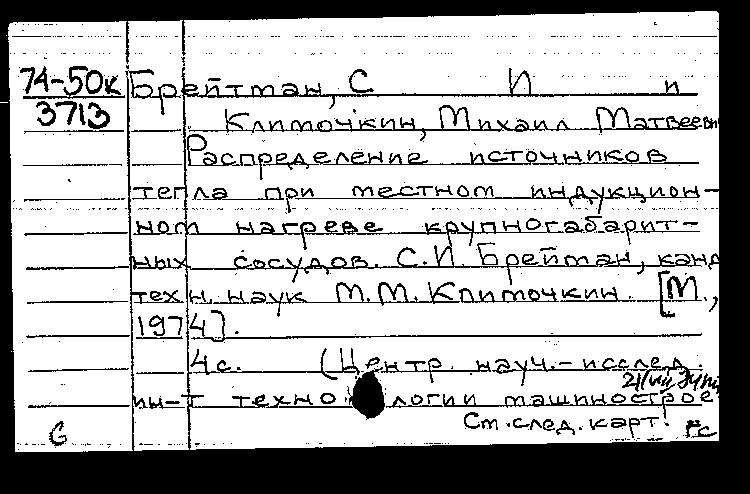 74-50к Брейтман, С И и
3713 Климочкин, Михаил Матвеевич
Распределение источников
тепла при местном индукцион-
ном нагреве крупногабарит-
ных сосудов. С.И. Брейтман, канд
техн. наук М.М. Климочкин. [М.,
1974].
4с. (Центр. науч.-исслед.
ин-т технологии машинострое
См.след.карт!